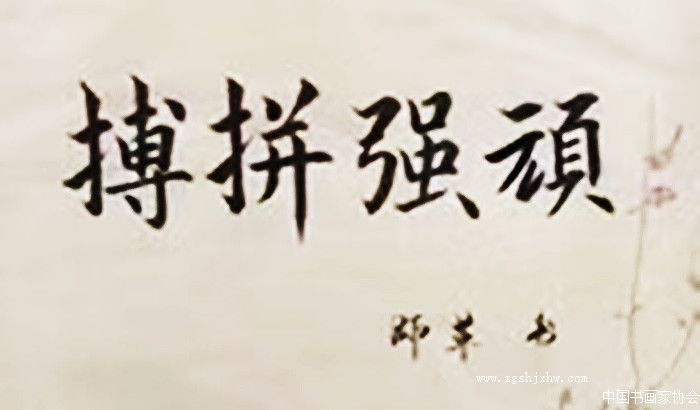 頑强拼搏
书
www.zgshjxhw.com
中国书画家协会